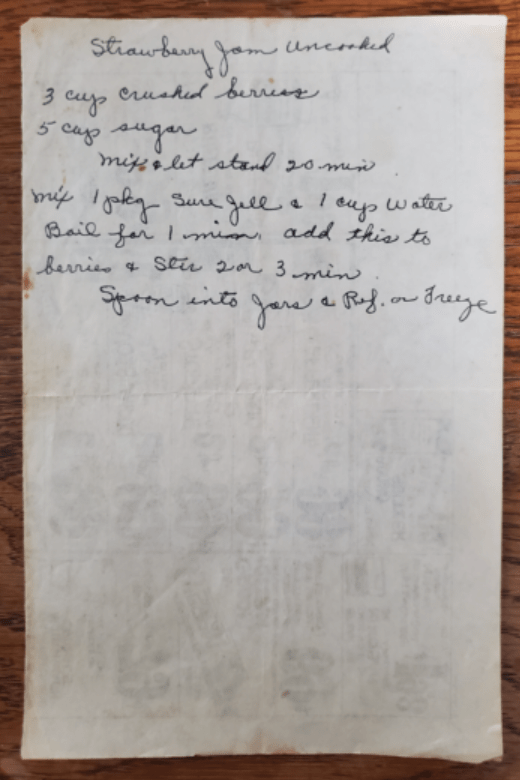 Strawberry Jam Uncooked
3 cups crushed berries
5 cups sugar
Mix & let stand 20 min
Mix 1 pkg Sure Jell & 1 cup Water
Boil for 1 min. add this to
berries & Stir 2 or 3 min.
Spoon into Jars & Ref. or Freeze